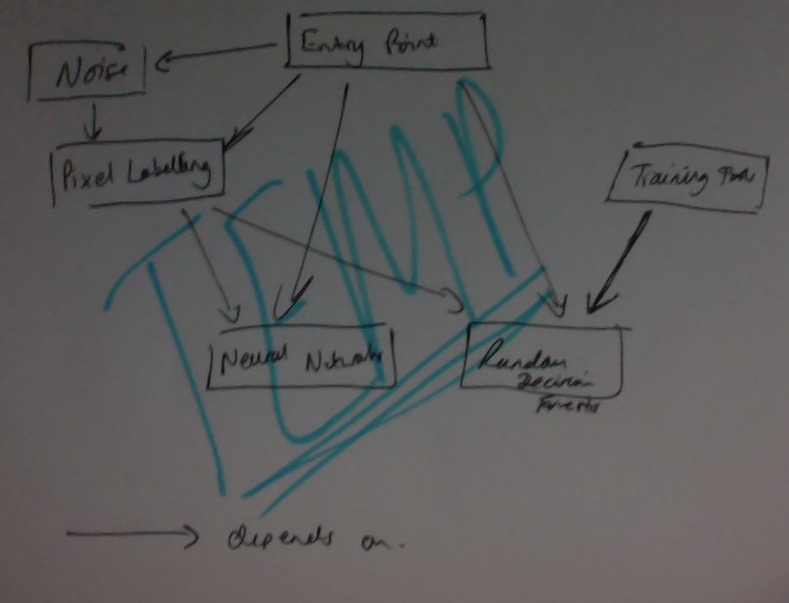 Entry Point
Noise
Pixel Labelling
Training
TEMP
Neural Networks
Random
Decision
Forests
depends on.